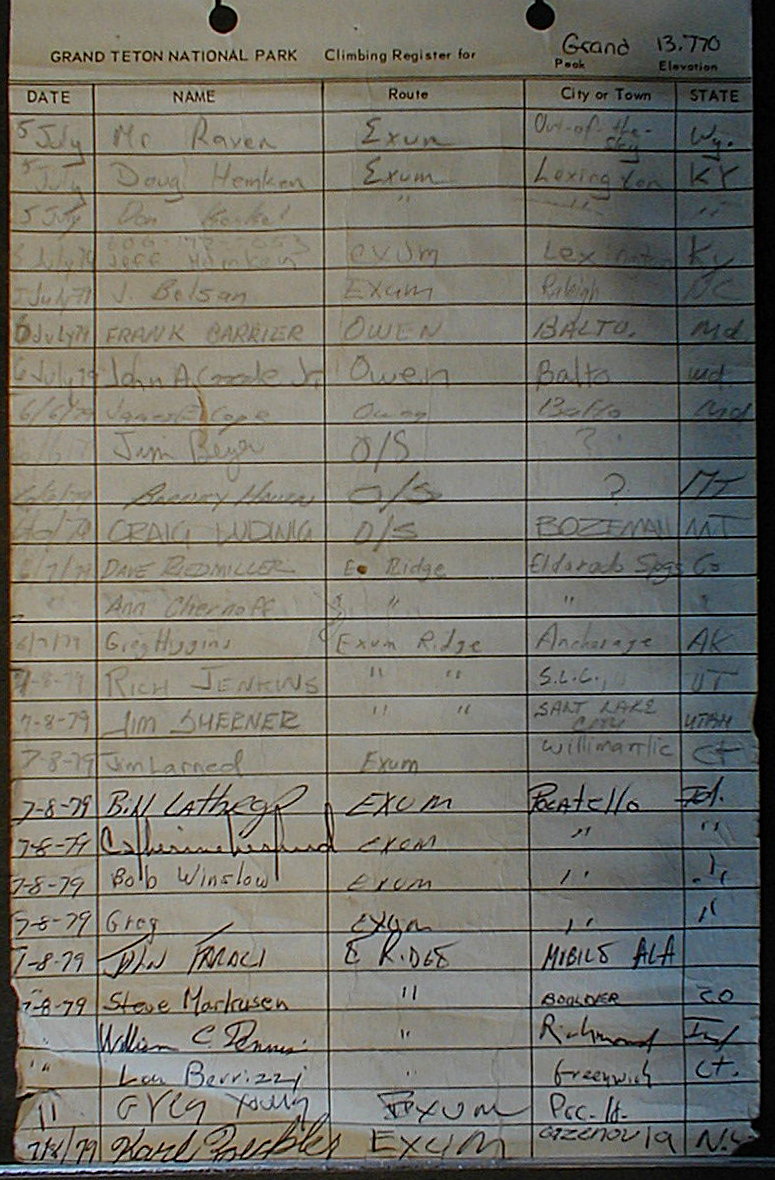 GRAND TETON NATIONAL PARK Climbing Register for Grand 13,770
Peak Elevation
DATE NAME Route City or Town STATE
5 July Mr Raven Exum Out-of-the-Sky Wy.
5 July Doug Hemken Exum Lexington KY
5 July Don " " "
5 July 79 Jeff Hemken exum Lexington Ky
5 July 79 J. Belsan Exum Raleigh NC
6 July 79 FRANK BARRIER OWEN BALTO. Md
6 July 79 John A Jr. Owen Balto Md.
6/6/79 James E Cope Owen Balto Md
Jim Beyer O/S ?
6/6/79 O/S ? MT
6/6/79 CRAIG LUDWIG O/S BOZEMAN MT
6/7/79 DAVE RIEDMILLER E. Ridge Eldorado Spgs Co
" Ann Chernoff " "
6/7/79 Greg Huggins Exum Ridge Anchorage AK
7-8-79 RICH JENKINS " " S.L.C. UT
7-8-79 JIM SHERNER " " SALT LAKE CITY UTAH
7-8-79 Jim Larned Exum Willimantic CT
7-8-79 Bill Lathrop EXUM Pocatello Id.
7-8-79 Catherine exum " "
7-8-79 Bob Winslow exum " "
7-8-79 Greg exum " "
7-8-79 JOHN E RIDGE MIBILE ALA
7-8-79 Steve Markusen " BOOLDER CO
" William C Dennis " Richmond Ind
" Lou Berrizzi " Greenwich CT.
" Greg Young Exum Poc. Id.
7/8/79 Karl Exum Cazenovia N.Y.